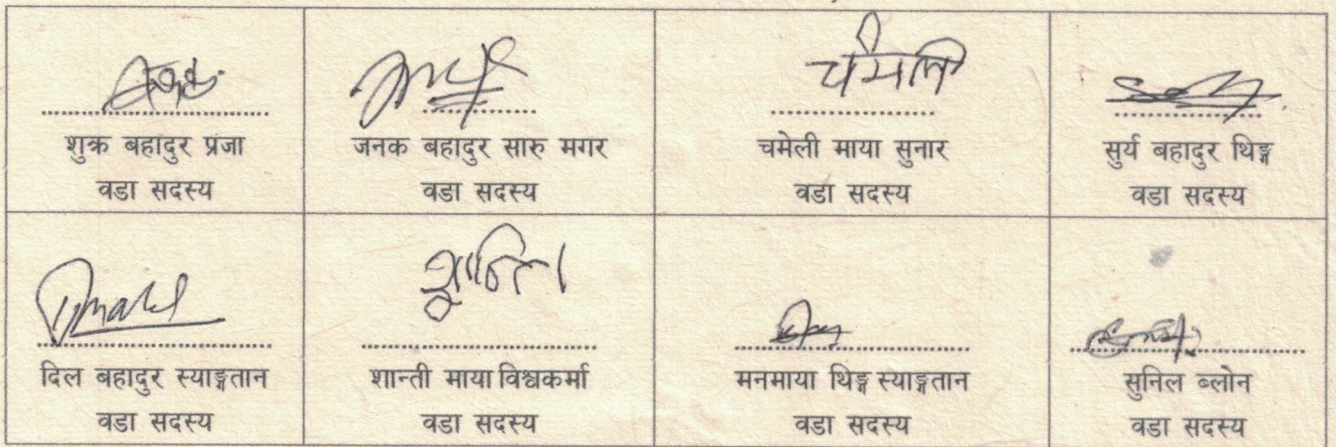 चमेली
शुक्र बहादुर प्रजा
वडा सदस्य
जनक बहादुर सारु मगर
वडा सदस्य
चमेली माया सुनार
वडा सदस्य
सुर्य बहादुर थिङ्ग
वडा सदस्य
दिल बहादुर स्याङ्गतान
वडा सदस्य
शान्ती माया विश्वकर्मा
वडा सदस्य
मनमाया थिङ्ग स्याङ्गतान
वडा सदस्य
सुनिल ब्लोन
वडा सदस्य